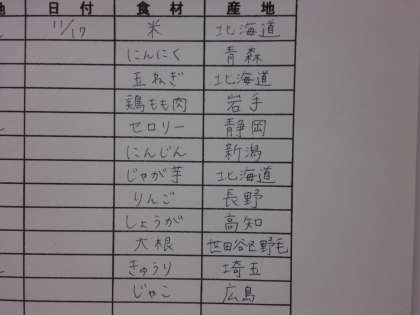 地 日付 食材 産地
11/17 米 北海道
にんにく 青森
玉ねぎ 北海道
鶏もも肉 岩手
セロリー 静岡
にんじん 新潟
じゃが芋 北海道
りんご 長野
しょうが 高知
大根 世田谷区野毛
きゅうり 埼玉
じゃこ 広島